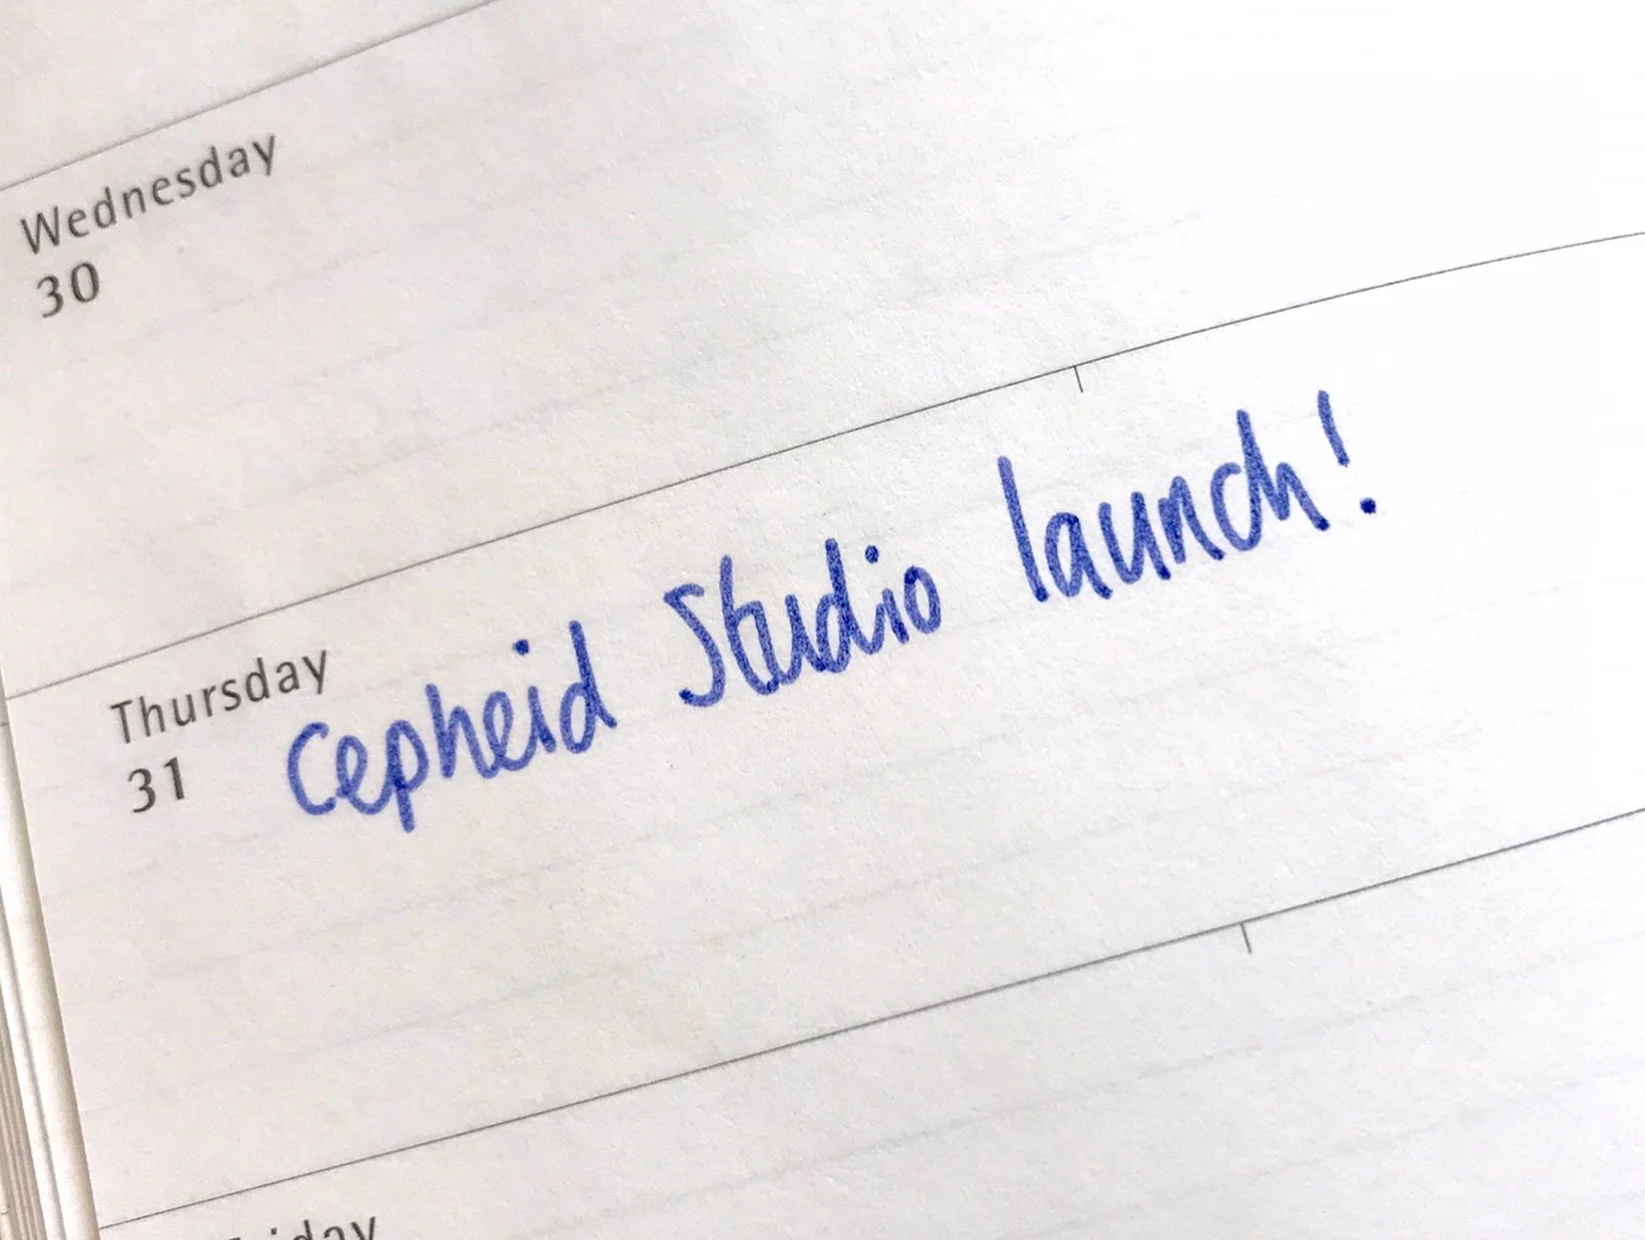 Wednesday
30
Thursday
31
Cepheid Studio launch!
Friday